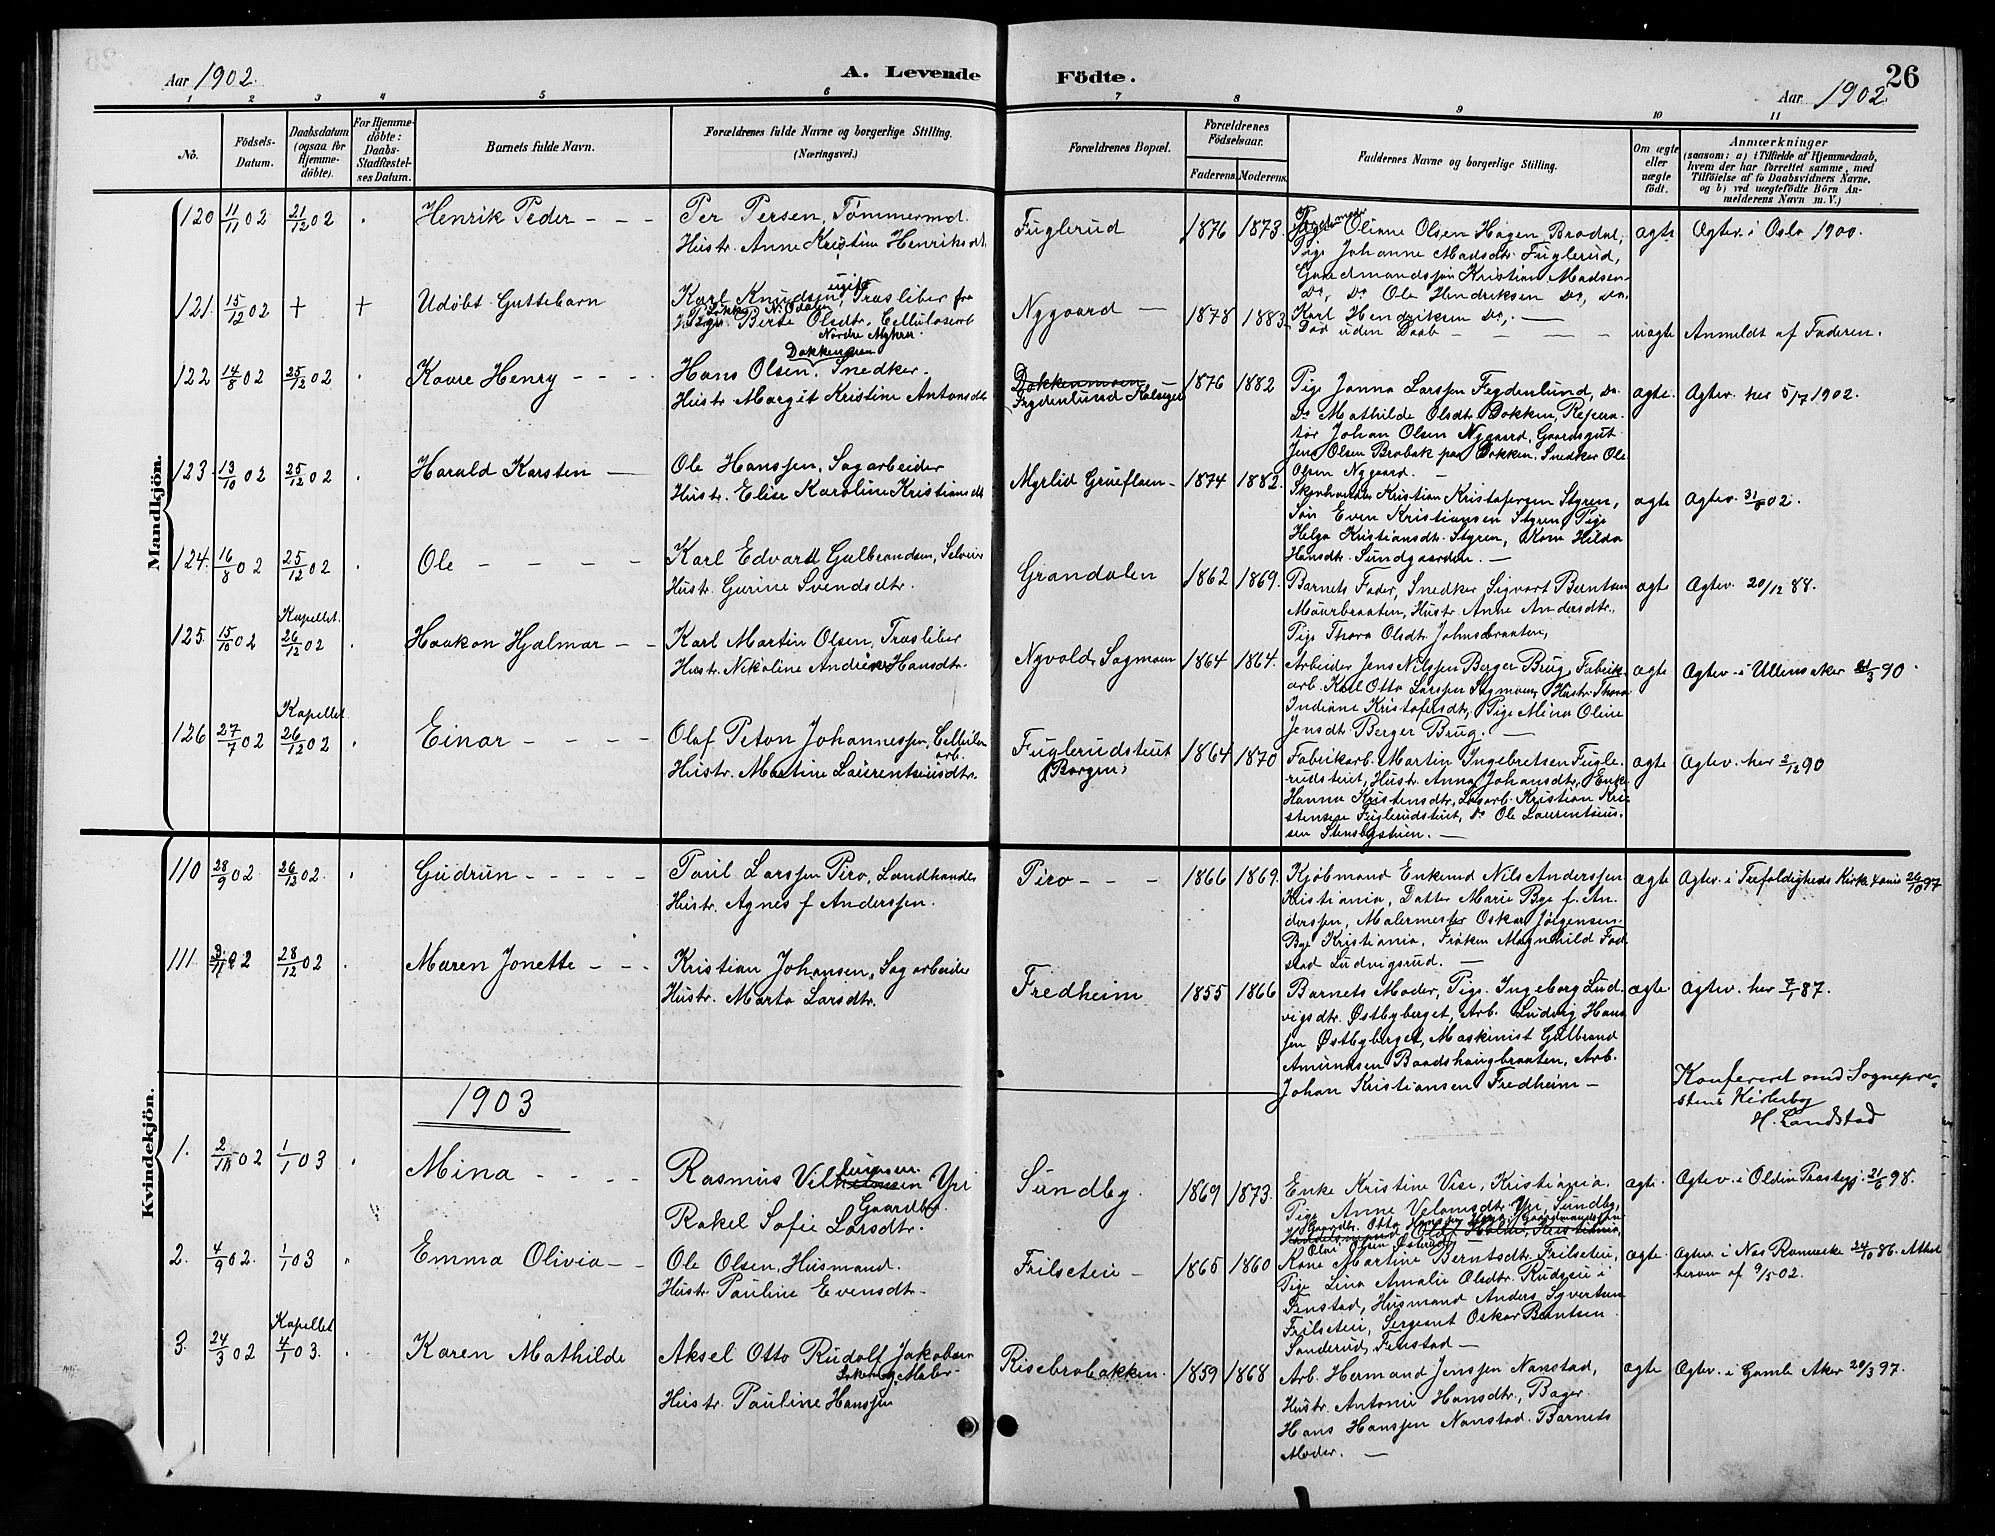 Aar 1902.
A. Levende
Födte.
26
Aar 1902.
1 2 3 4 5 6 7 8 9 10 11
Nô.
Födsels-
Datum.
Daabsdatum
(ogsaa for
Hjemme-
döbte).
For Hjemme-
döbte:
Daabs-
Stadfæstel-
ses Datum.
Barnets fulde Navn.
Forældrenes fulde Navne og borgerlige Stilling.
(Næringsvei.)
Forældrenes Bopæl.
Forældrenes
Födselsaar.
Faderens. Moderens.
Faddernes Navne og borgerlige Stilling.
Om ægte
eller
uægte
födt.
Anmærkninger
(saasom: a) i Tilfælde af Hjemmedaab,
hvem der har forrettet samme, med
Tilföielse af to Daabsvidners Navne.
og b) ved uægtefödte Börn An-
melderens Navn m. V.)
Mandkjön.
120 11/11 02 21/12 02 Henrik Peder
Per Persen, Tømmermd.
Hustr. Anne Kristine Henriksdt.
Fuglerud 1876 1873
Oliane Olsen Hagen Brodal,
Pige Johanne Madsdtr. Fuglerud,
Gaardmandssøn Kristian Madsen
Do, Do Ole Hendriksen Do, do,
Karl Hendriksen Do,
ægte Ægtev. i Oslo 1900.
121. 15/12 02 + + Udøbt Guttebarn
Karl Knudsen, ugift Træsliber fra
N. Odalen
Pige Berte Olsdtr. Cellulosearb
Nordre Myhrer
Nygaard 1878 1883
Død uden Daab
uægte Anmeldt af Faderen.
122 14/8 02 25/12 02 Kaare Henry
Hans Olsen Dokkenmoen, Snedker.
Hustr. Margit Kristine Antonsdtr
Dokkenmoen
Frydenlund 1876 1882
Pige Janna Larsen Frydenlund, Do
Do Mathilde Olsdtr. Dokken, Repera-
tør Johan Olsen Nygaard, Gaardsgut
Jens Olsen Brobak paa Dokken, Snedker Ole
Olsen Nygaard.
ægte. Ægtev. her 5/7 1902.
123 13/10 02 25/12 02 Harald Karsten
Ole Hanssen, Sagarbeider
Hustr. Elise Karoline Kristiansdt
Myrlid 1874 1882.
Kristian Kristofersen Styren,
Søn Even Kristiansen Styren, Pige
Helga Kristiansdtr. Styren, Kone Hilda
Hansdtr. Sundgaarden.
ægte Ægtev. 31/8 02.
124. 16/8 02 25/12 02 Ole
Karl Edvard Gulbrandsen, Selveier
Hustr. Gurine Svendsdtr.
Grandalen 1862 1869.
Barnets Fader, Snedker Sigvart Berntsen
Maurbraaten, Hustr. Anne Andersdtr.,
Pige Thora Olsdtr. Johnsbraaten,
ægte Ægtev. 20/12 88.
125. 15/10 02 Kapellet 26/12 02 Haakon Hjalmar
Karl Martin Olsen, Træsliber
Hustr. Nikoline Andrea Hansdtr.
Nyvold, Sagmoen 1864 1864.
Arbeider Jens Nilssen Berger Brug, Fabrik-
arb. Karl Otto Larssen Sagmoen, Hustr. Thora
Indiane Kristofersdtr, Pige Mina Oline
Jensdtr. Berger Brug.
ægte Ægtev. i Ullensaker 21/3 90
126 27/7 02 Kapellet 26/12 02 Einar
Olaf Peton Johannessen, Cellulose
arb.
Hustr. Martine Laurentsiusdtr.
Fuglerudstuet
(Borgen) 1864 1870
Fabrikarb. Martin Ingebretsen Fugle-
rudstuet, Hustr. Anna Johansdtr, Enke
Hanna Kristensdtr, Løsarb. Kristian Kri-
stensen Fuglerudstuet, Do Ole Laurentsius-
sen Stensbystuen.
ægte Ægtev. her 2/12 90
Kvindekjön.
110 28/9 02 26/12 02. Gudrun
Paul Larssen Piro, Landhandler
Hustr. Agnes f. Anderssen.
Piro 1866 1869.
Kjøbmand Enkemd Nils Anderssen
Kristiania, Datter Marie Bye f. An-
derssen, Malermester Oskar Jørgensen
Bye Kristiania, Frøken Magnhild Fod-
stad Ludvigsrud.
ægte Ægtev. i Trefoldigheds Kirke Xania 26/10 97
111. 3/11 02 28/12 02 Maren Jonette
Kristian Johansen, Sagarbeider
Hustr. Marta Larsdtr.
Fredheim 1855 1866
Barnets Moder, Pige Ingeborg Lud-
vigsdtr. Østbyberget, Arb. Ludvig Hans-
sen Østbyberget, Maskinist Gulbrand
Amundsen Baadshaugbraaten, Arb.
Johan Kristiansen Fredheim
ægte. Ægtev. her 7/1 87.
Konfereret med Sognepre-
stens Kirkebog
H. Landstad
1903
1. 2/11 02 1/1 03 Mina
Rasmus Vilhelmsen Yri
Gaardbr.
Rakel Sofie Larsdtr.
Sundby. 1869 1873.
Enke Kristine Vise, Kristiania,
Pige Anne Velomsdtr Yri, Sundby,
ægte. Ægtev. i Olden Præstegj. 21/6 98.
2. 4/9 02. 1/1 03 Emma Olivia
Ole Olsen, Husmand.
Hustr. Pauline Evensdtr.
Frilseteie 1865 1860
Kone Martine Berntsdtr. Frilseteie,
Pige Lina Amalie Olsdtr. Rudseie i
Fenstad, Husmand Anders Syvertsen
Frilseteie, Sergeant Oskar Berntsen
Sanderud, Fenstad
ægte. Ægtev. i Næs Romerike 24/10 86. Attest
herom af 9/5 02.
3. 24/3 02 Kapellet 4/1 03. Karen Mathilde
Aksel Otto Rudolf Jakobsen
Maler
Hustr. Pauline Hanssen
Risebrobakken. 1859 1868
Arb. Hermand Jenssen Nanstad,
Hustr. Antonie Hansdtr., Bager
Hans Hanssen Nanstad. Barnets
Moder.
ægte Ægtev. i Gamle Aker 20/3 97.